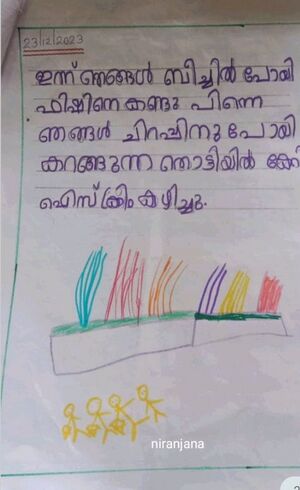 23/12/2023
ഇന്ന് ഞങ്ങൾ ബീച്ചിൽ പോയി
ഫിഷിനെ കണ്ടു പിന്നെ
ഞങ്ങൾ ചിറപ്പിനു പോയി
കറങ്ങുന്ന തൊട്ടിയിൽ കേറി
ഐസ്ക്രിം കഴിച്ചു.
niranjana